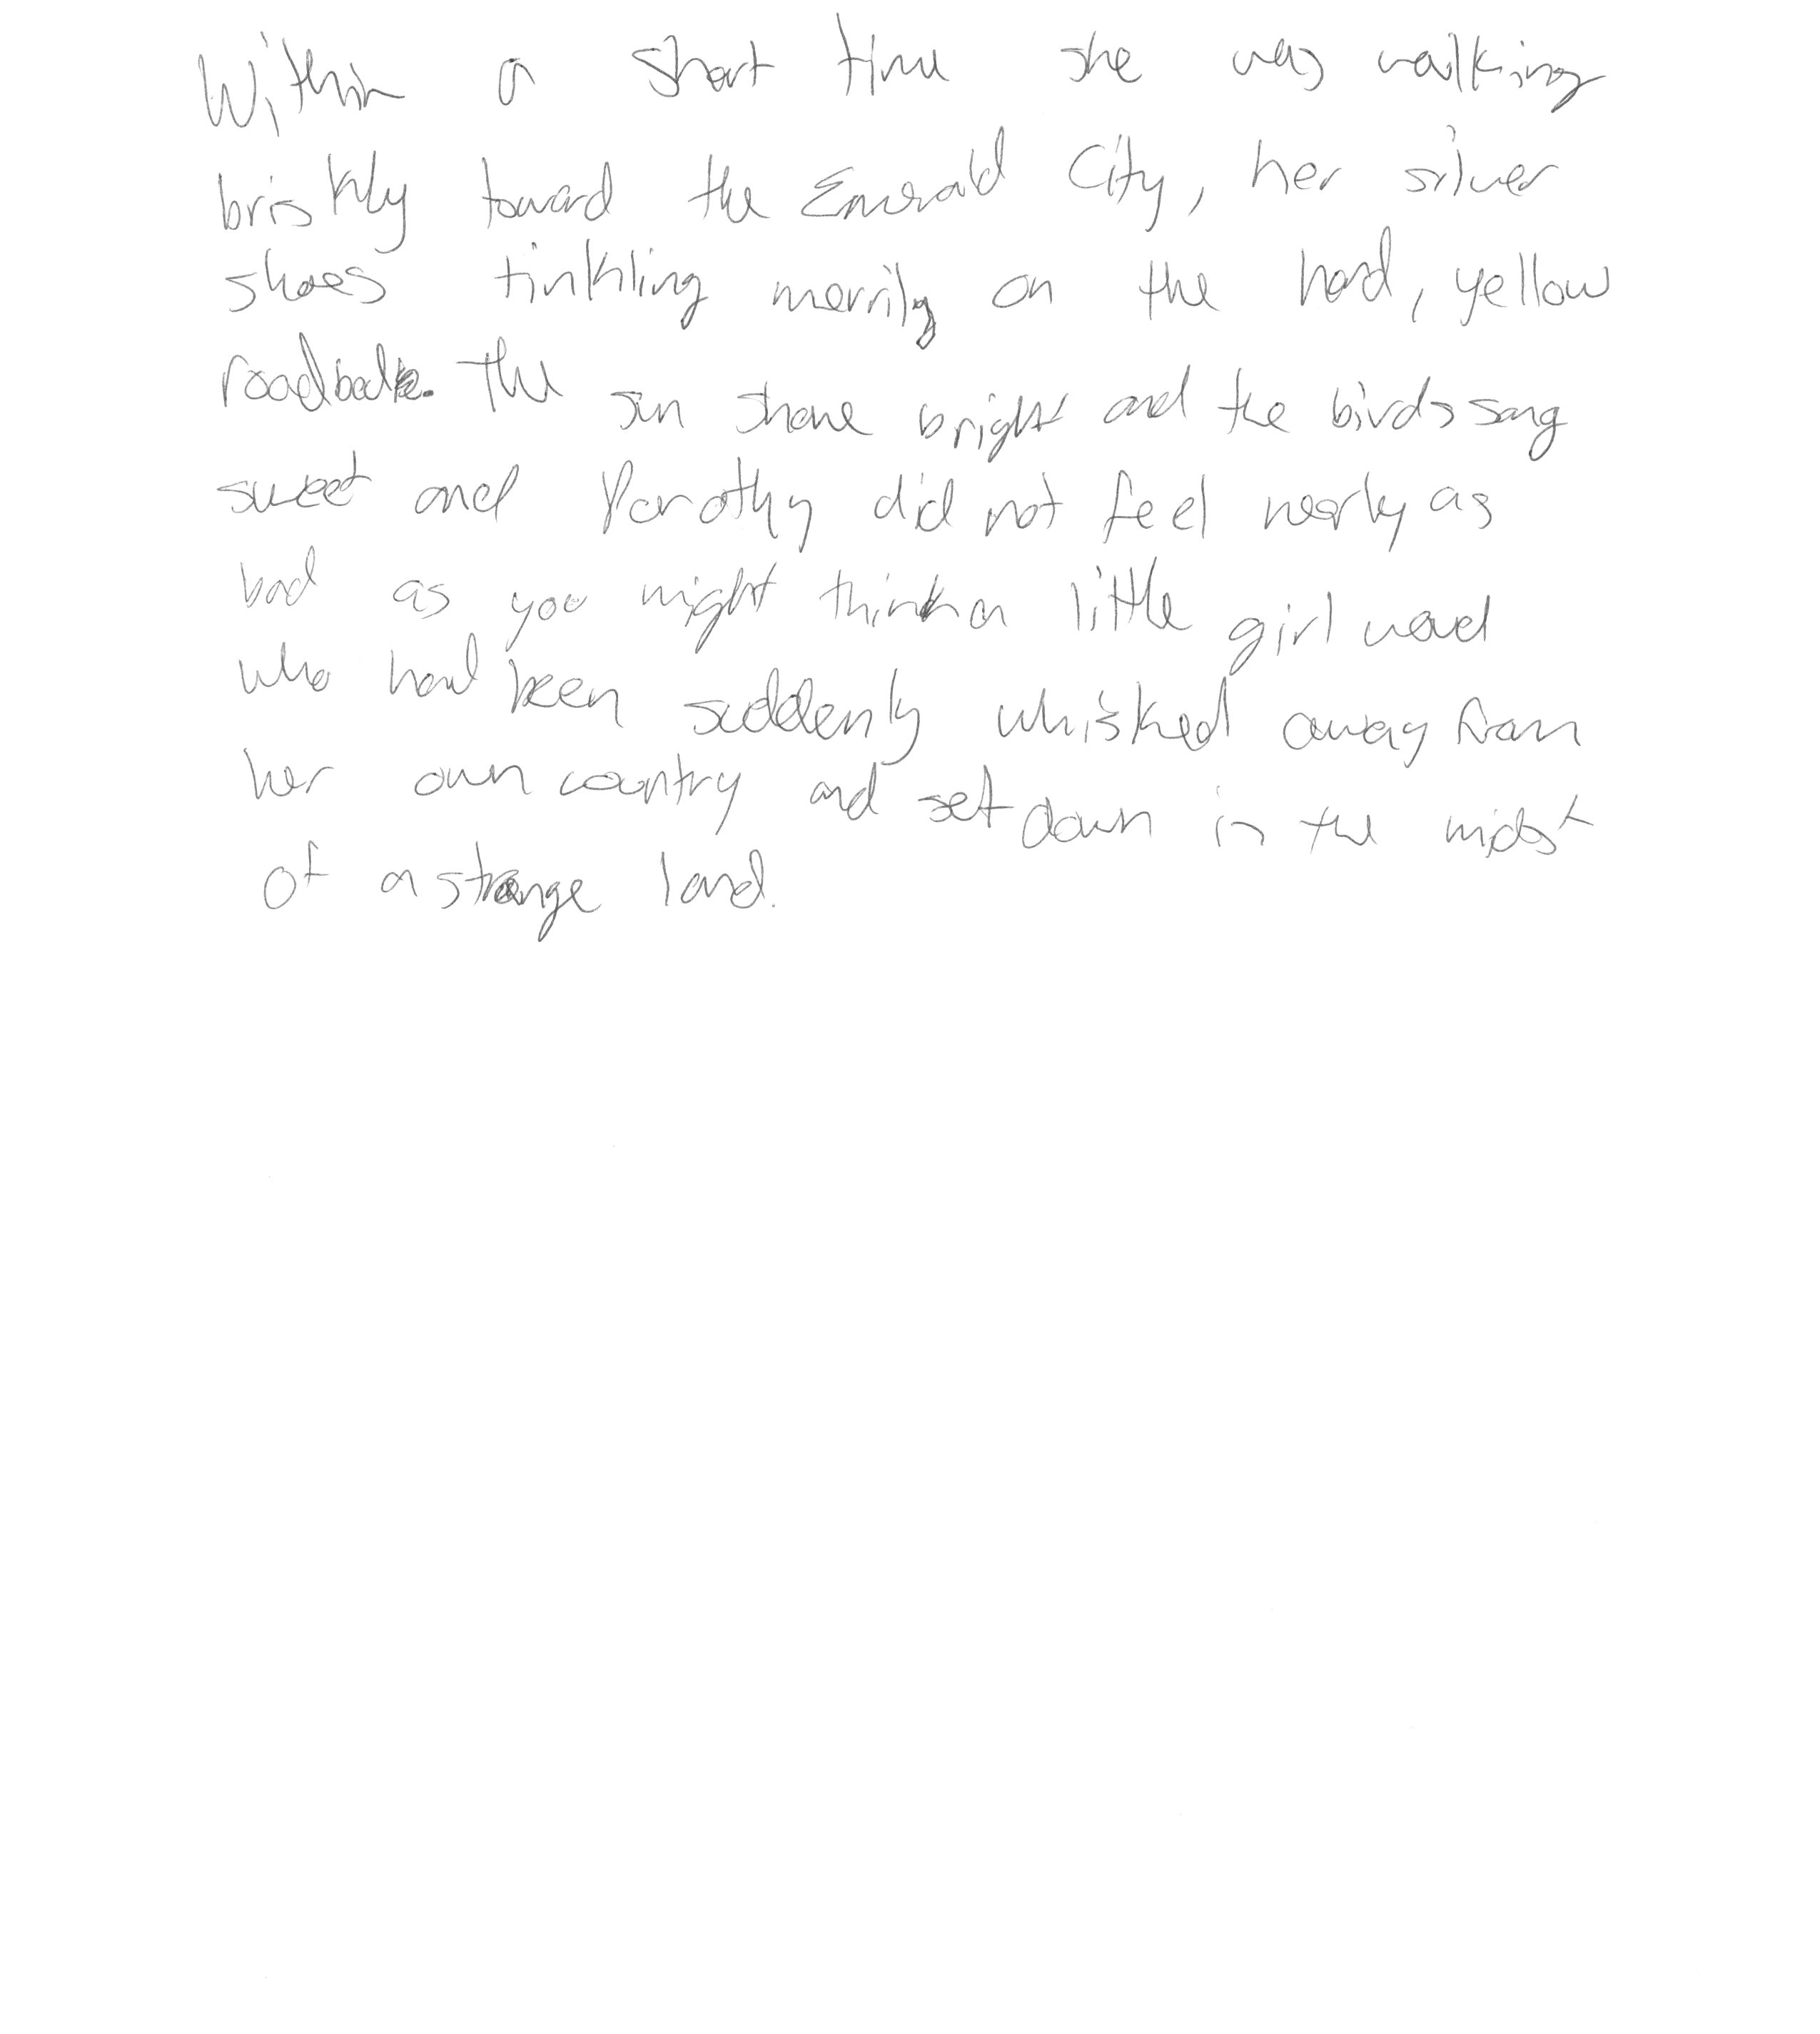 Within a short time she was walking
briskly toward the Emerald City, her silver
shoes tinkling merrily on the hard, yellow
The sun shone bright and the birds sang
sweet and Dorothy did not feel nearly as
bad as you might think a little girl would
who had been suddenly whisked away from
her own country and set down in the midst
of a strange land.